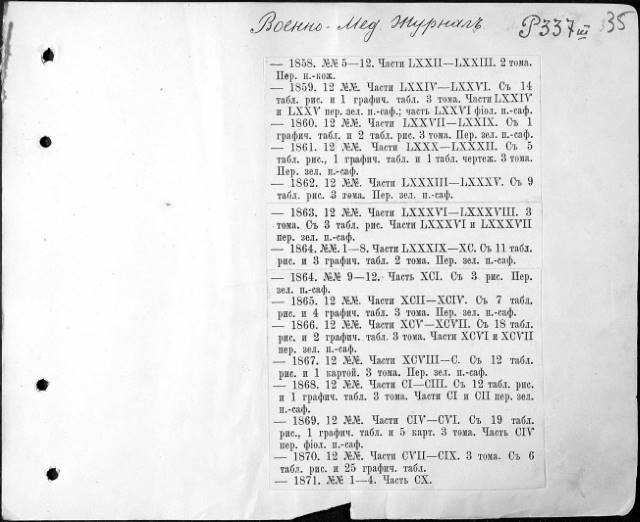 Военно-Мед. Журналъ. P337 III 35
— 1858. №№ 5—12. Части LXXII—LXXIII. 2 тома.
Пер. п.-кож.
— 1859. 12 №№. Части LXXIV—LXXVI. Съ 14
табл. рис. и 1 графич. табл. 3 тома. Части LXXIV
и LXXV пер. зел. п.-саф.; часть LXXVI фіол. п.-саф.
— 1860. 12 №№. Части LXXVII—LXXIX. Съ 1
графич. табл. и 2 табл. рис. 3 тома. Пер. зел. п.-саф.
— 1861. 12 №№. Части LXXX—LXXXII. Съ 5
табл. рис., 1 графич. табл. и 1 табл. чертеж. 3 тома.
Пер. зел. п.-саф.
— 1862. 12 №№. Части LXXXIII—LXXXV. Съ 9
табл. рис. 3 тома. Пер. зел. п.-саф.
— 1863. 12 №№. Части LXXXVI—LXXXVIII. 3
тома. Съ 3 табл. рис. Части LXXXVI и LXXXVII
пер. зел. п.-саф.
— 1864. №№. 1—8. Части LXXXIX—XC. Съ 11 табл.
рис. и 3 графич. табл. 2 тома. Пер. зел. п.-саф.
— 1864. №№ 9—12. Часть XCI. Съ 3 рис. Пер.
зел. п.-саф.
— 1865. 12 №№. Части XCII—XCIV. Съ 7 табл.
рис. и 4 графич. табл. 3 тома. Пер. зел. п.-саф.
— 1866. 12 №№. Части XCV—XCVII. Съ 18 табл.
рис. и 2 графич. табл. 3 тома. Части XCVI и XCVII
пер. зел. п.-саф.
— 1867. 12 №№. Части XCVIII—C. Съ 12 табл.
рис. и 1 картой. 3 тома. Пер. зел. п.-саф.
— 1868. 12 №№. Части CI—CIII. Съ 12 табл. рис.
и 1 графич. табл. 3 тома. Части CI и CII пер. зел.
п.-саф.
— 1869. 12 №№. Части CIV—CVI. Съ 19 табл.
рис., 1 графич. табл. и 5 карт. 3 тома. Часть CIV
пер. фіол. п.-саф.
— 1870. 12 №№. Части CVII—CIX. 3 тома. Съ 6
табл. рис. и 25 графич. табл.
— 1871. №№ 1—4. Часть CX.